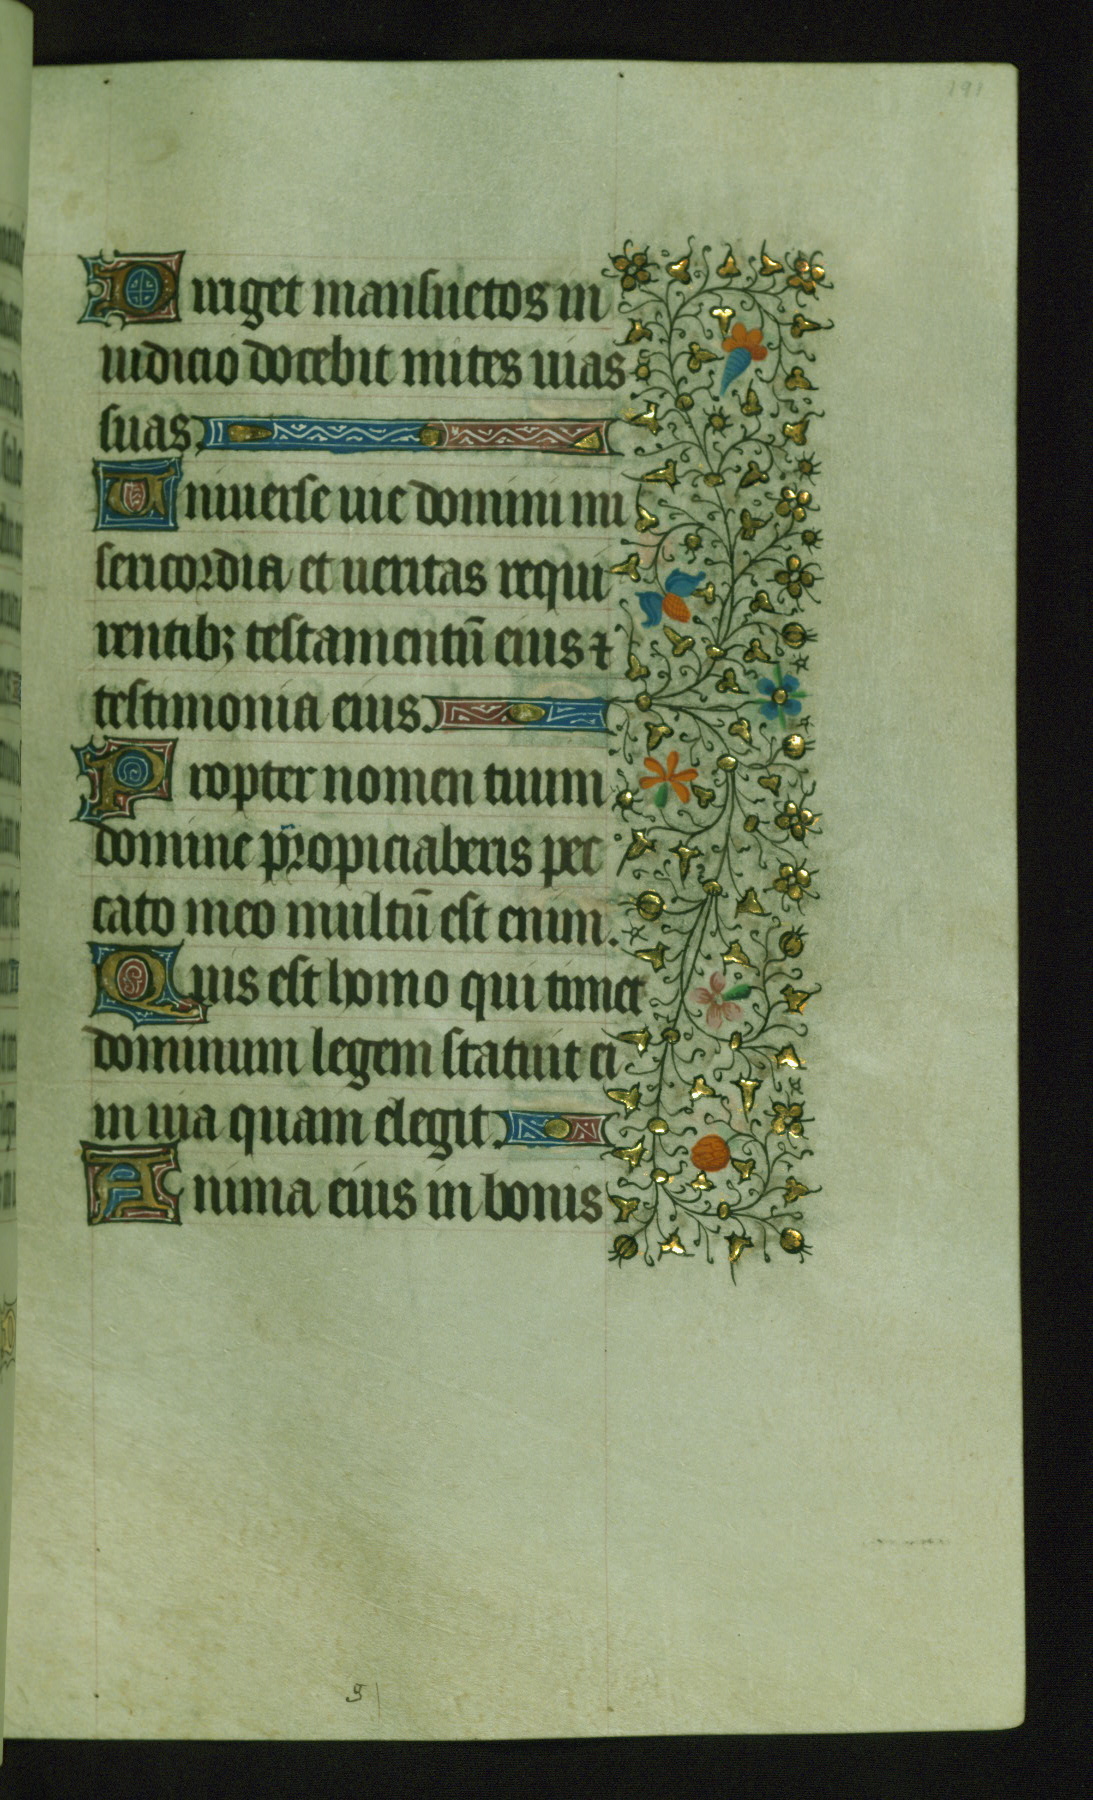 191
Diriget mansuetos in
iudicio docebit mites uias
suas.
Uniuerse uie domini mi
sericordia et ueritas requi
rentib; testamentū eius ⁊
testimonia eius.
Propter nomen tuum
domine propiciaberis pec
cato meo multū est enim.
Quis est homo qui timet
dominum legem statuit ei
in uia quam elegit.
Anima eius in bonis